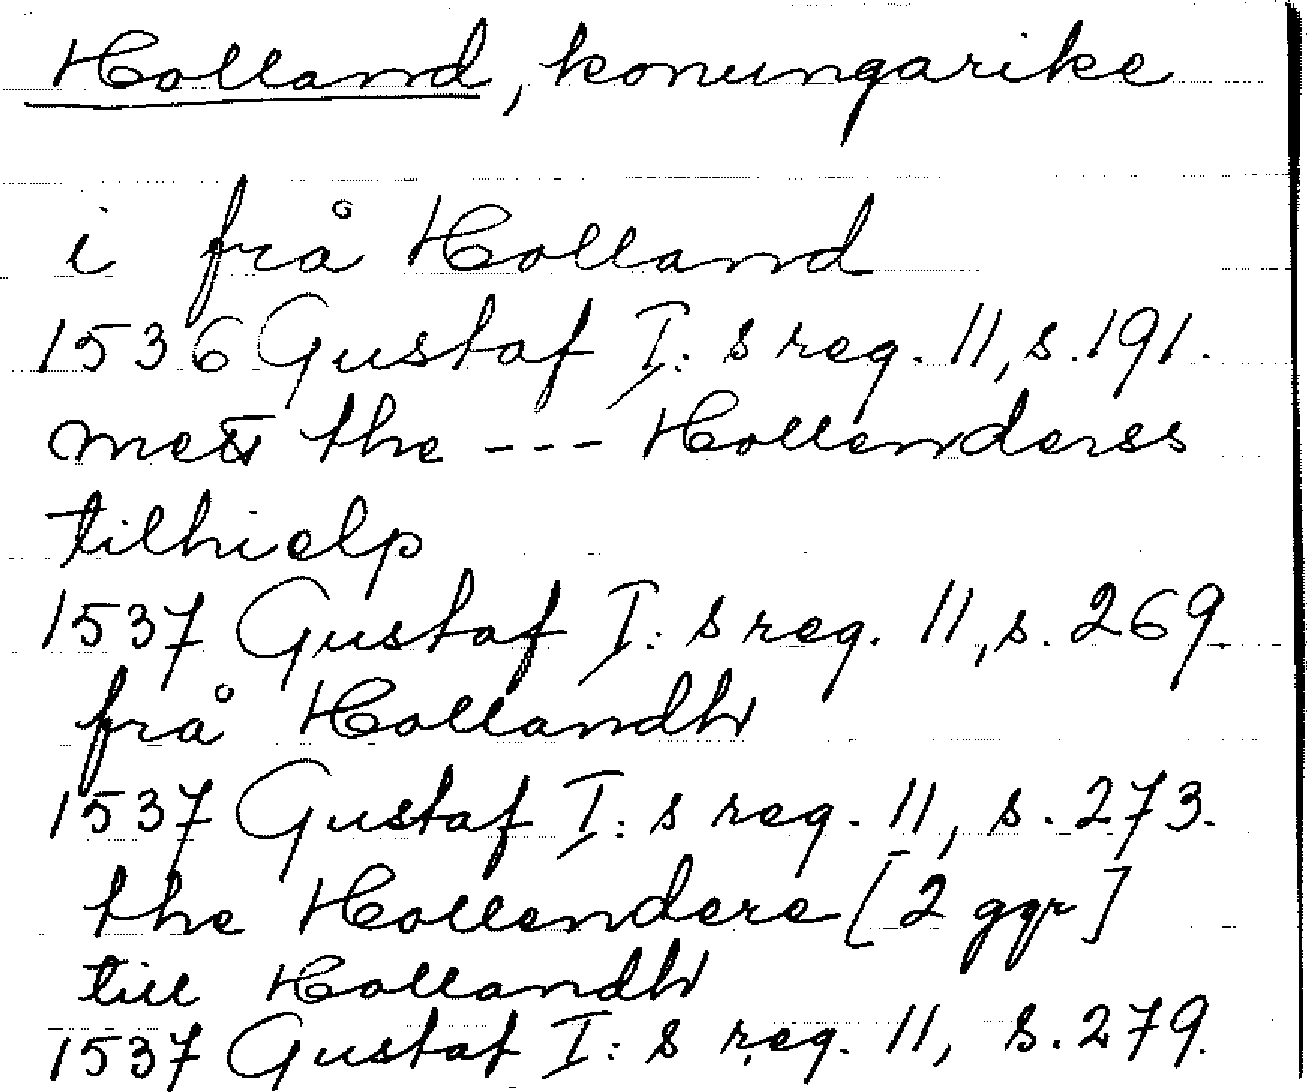 Holland, konungarike
i frå Holland
1536 Gustaf I: s reg. 11, s. 191.
mett the --- Hollenderss
tilhielp
1537 Gustaf I: s reg. 11, s. 269.
frå Hollandh
1537 Gustaf I: s reg. 11, s. 273.
the Hollendere [2 ggr]
till Hollandh
1537 Gustaf I: s reg. 11, s. 279.